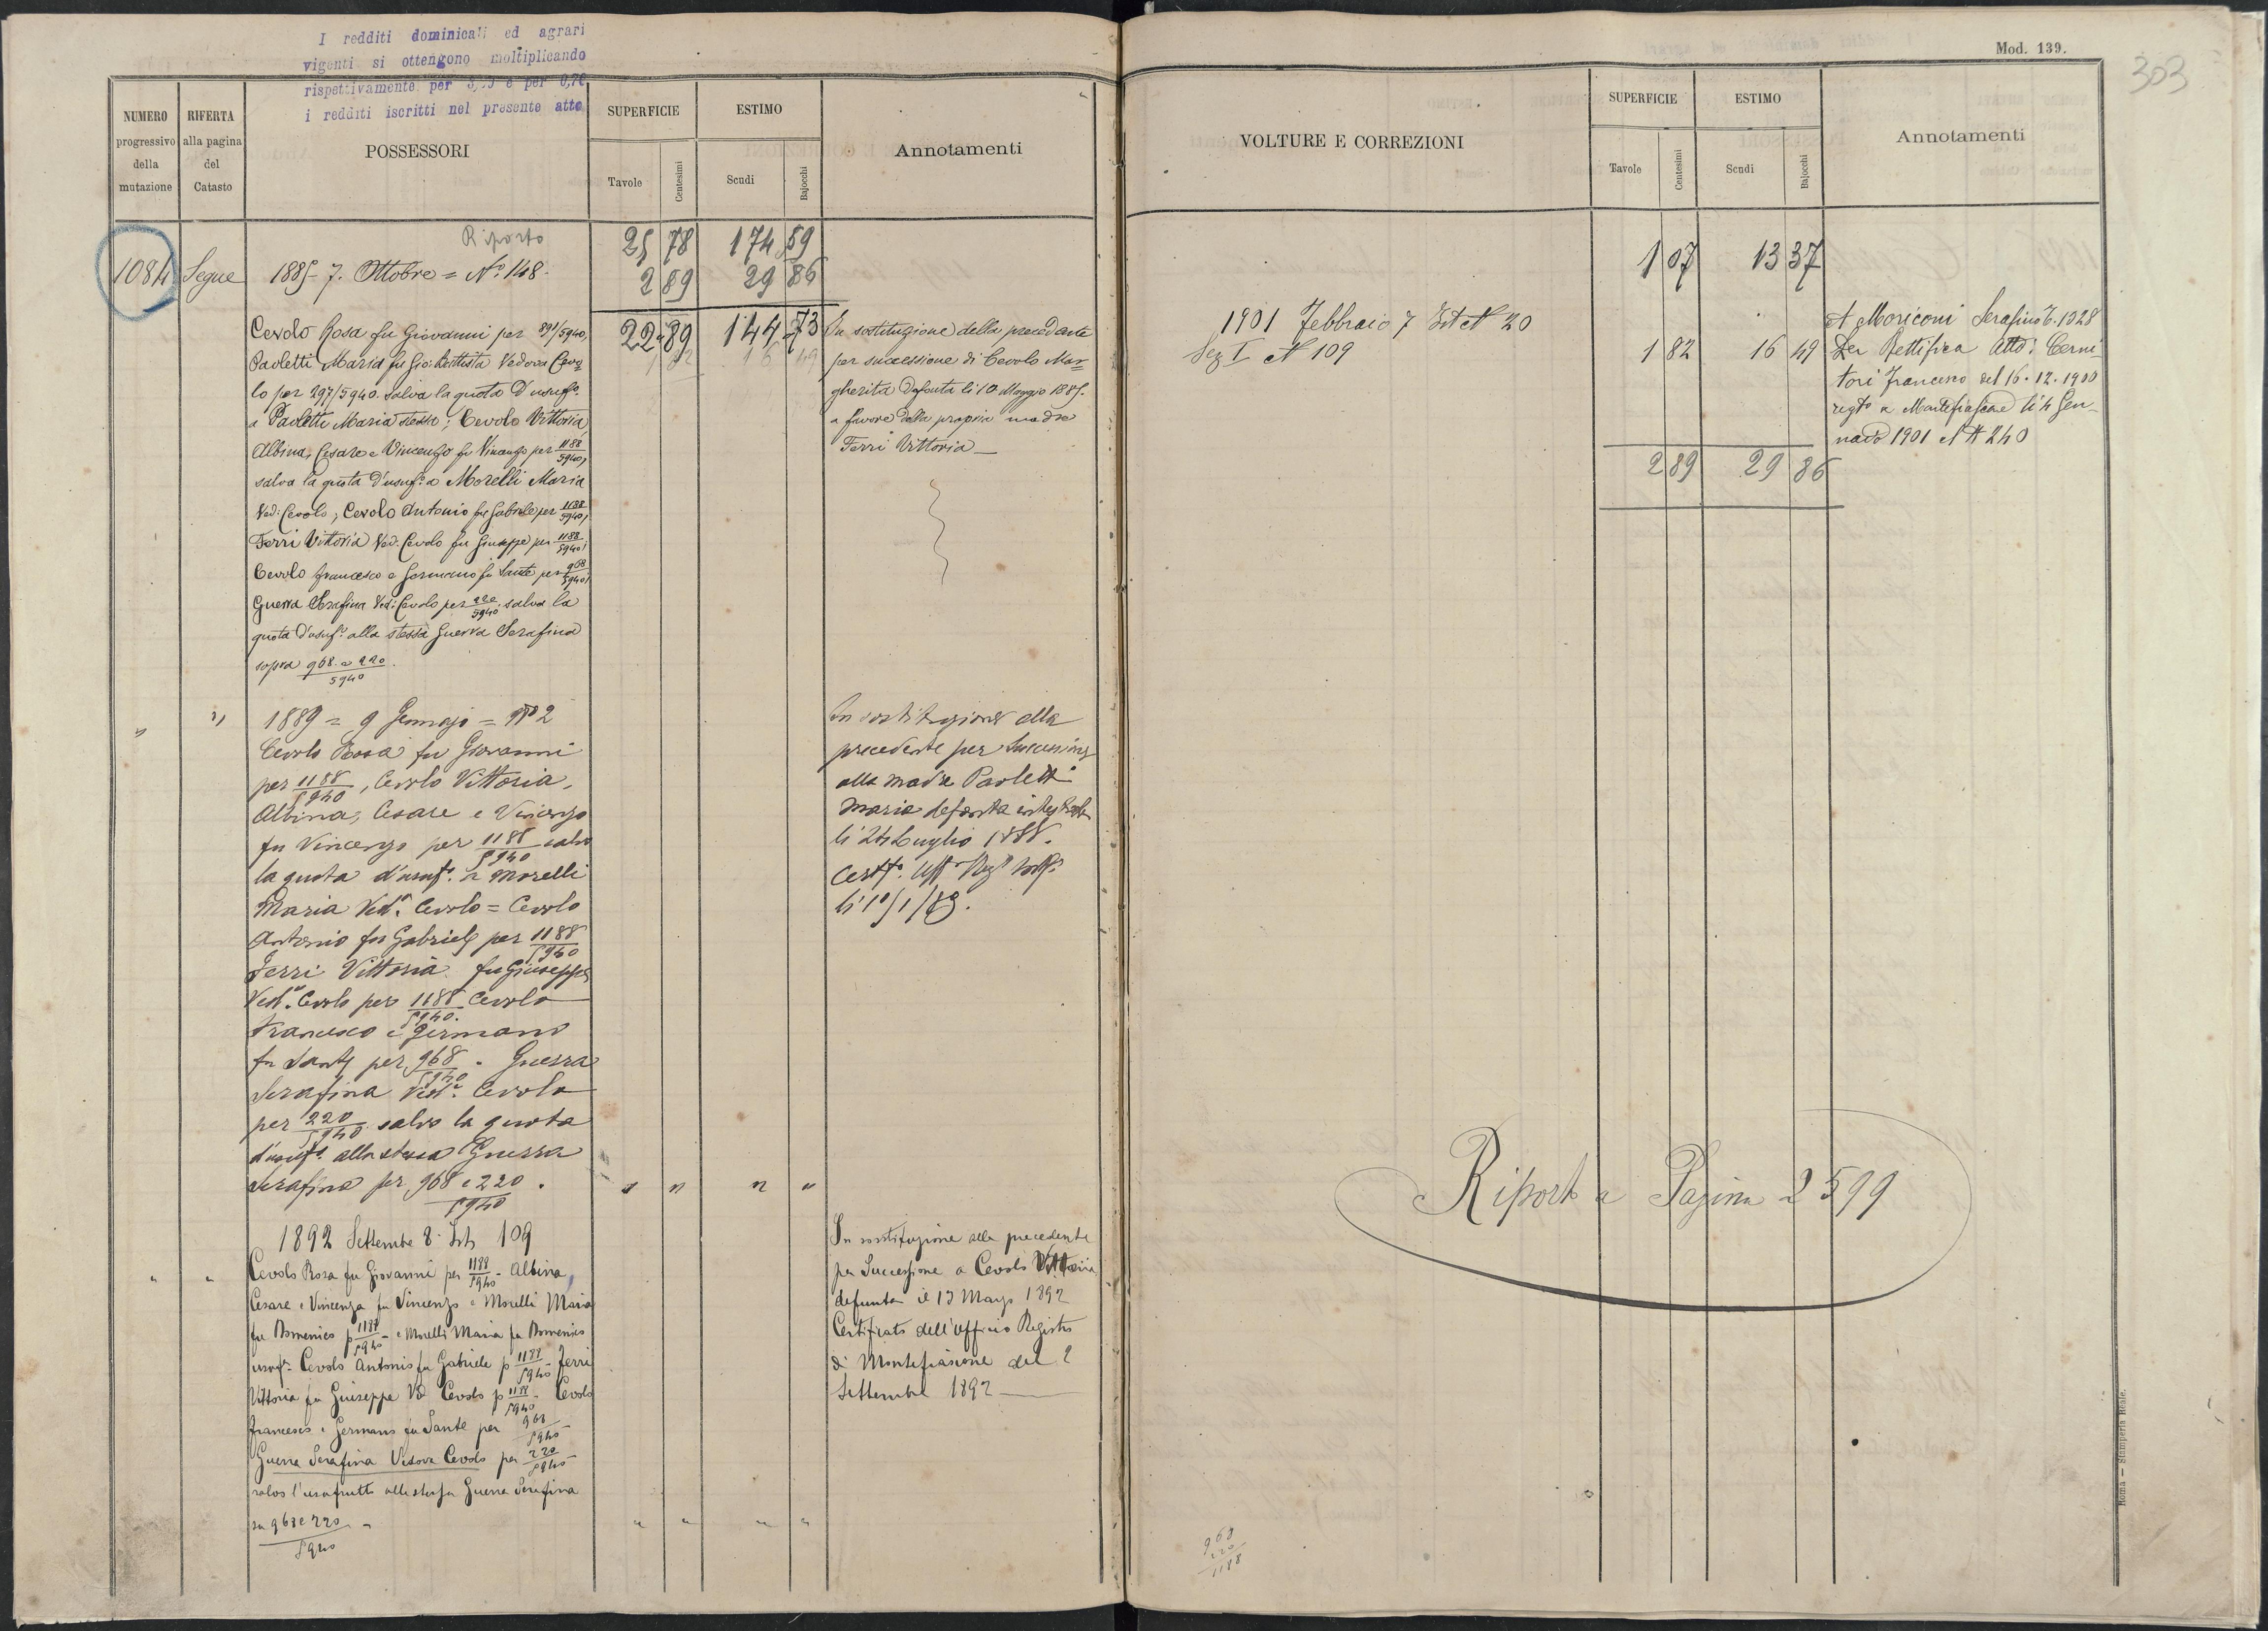 I redditi dominicali ed agrari
vigenti si ottengono moltiplicando
rispettivamente per e per 0,70
i redditi iscritti nel presente atto
NUMERO
progressivo
della
mutazione
RIFERTA
alla pagina
del
Catasto
POSSESSORI
SUPERFICIE
Tavole
Centesimi
ESTIMO
Scudi
Bajocchi
Annotamenti
Riporto 25 78 174 59
1084 Segue 1885- 7. Ottobre = N.º 148- 2 89 29 86
22 89 144 73
1 82 16 49
Cevolo Rosa fu Giovanni per 891/5940,
Paoletti Maria fu Gio: Battista Vedova Cevo=
lo per 297/5940. salva la quota d'usuf.º
a Paoletti Maria stessa; Cevolo Vittoria,
Albina, Cesare e Vincenzo fu Vincenzo per 1188/5940,
salva la quota d'usuf.º a Morelli Maria
Ved: Cevolo; Cevolo Antonio fu Gabriele per 1188/5940;
Ferri Vittoria Ved: Cevolo fu Giuseppe per 1188/5940;
Cevolo Francesco e Germano fu Sante per 968/5940;
Guerra Serafina Ved: Cevolo per 220/5940 salva la
quota d'usuf.º alla stessa Guerra Serafina
sopra 968 e 220/5940.
In sostituzione della precedente
per successione di Cevolo Mar=
gherita defunta li 10 Maggio 1885.
a favore della propria madre
Ferri Vittoria —
" " 1889 = 9 Gennajo = Nº 2
Cevolo Rosa fu Giovanni
per 1188/5940, Cevolo Vittoria,
Albina, Cesare e Vincenzo
fu Vincenzo per 1188/5940 salvo
la quota d'usuf.º a Morelli
Maria Ved.ª Cevolo = Cevolo
Antonio fu Gabriele per 1188/5940
Ferri Vittoria fu Giuseppe
Ved.ª Cevolo per 1188/5940. Cevolo
Francesco e Germano
fu Sante per 968/5940. Guerra
Serafina Ved.ª Cevolo
per 220/5940 salvo la quota
d'usuf.º alla stessa Guerra
Serafina per 968 e 220/5940. " " " "
In sostituzione alla
precedente per Successione
alla madre Paoletti
Maria defunta
li 24 Luglio 1888.
Certf.º Uff.º Reg.º
li 10/1/89.
1892 Settembre 8 Ist 109
" " Cevolo Rosa fu Giovanni per 1188/5940 - Albina,
Cesare e Vincenza fu Vincenzo e Morelli Maria
fu Domenico p 1188/5940 - e Morelli Maria fu Domenico
usuf.ª Cevolo Antonio fu Gabriele p 1188/5940 - Ferri
Vittoria fu Giuseppe Vª Cevolo p 1188/5940 - Cevolo
Francesco e Germano fu Sante per 968/5940 -
Guerra Serafina Vedova Cevolo per 220/5940 -
salvo l'usufrutto alla stessa Guerra Serafina
su 968 e 220/5940 - " " " "
In sostituzione alla precedente
per Successione a Cevolo Vittoria
defunta il 13 Marzo 1892
Certificato dell'Ufficio Registro
di Montefiascone del 2
Settembre 1892 —
Mod. 139.
303
VOLTURE E CORREZIONI
SUPERFICIE
Tavole
Centesimi
ESTIMO
Scudi
Bajocchi
Annotamenti
1 07 13 37
1901 Febbraio 7 Ist N 20
Sez I N 109 1 82 16 49
2 89 29 86
A Moriconi Serafino P. 1028
Per Rettifica Atto: Cerni-
tori Francesco del 16.12.1900
regto a Montefiascone li 4 Gen-
naio 1901 al N 240
Riporto a Pagina 2599
968
220
1188
Roma — Stamperia Reale.